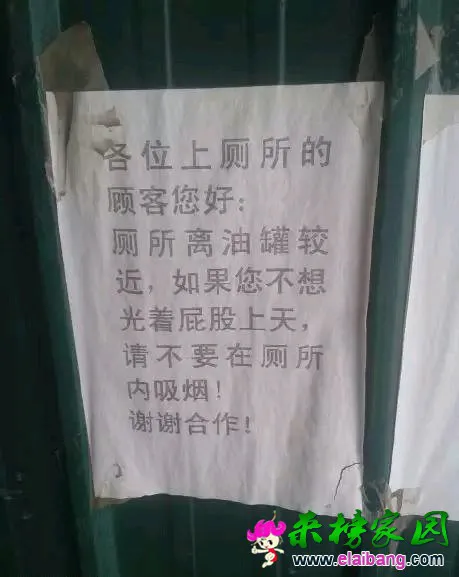 各位上厕所的
顾客您好：
厕所离油罐较
近，如果您不想
光着屁股上天，
请不要在厕所
内吸烟！
谢谢合作！
来榜家园
www.elaibang.com